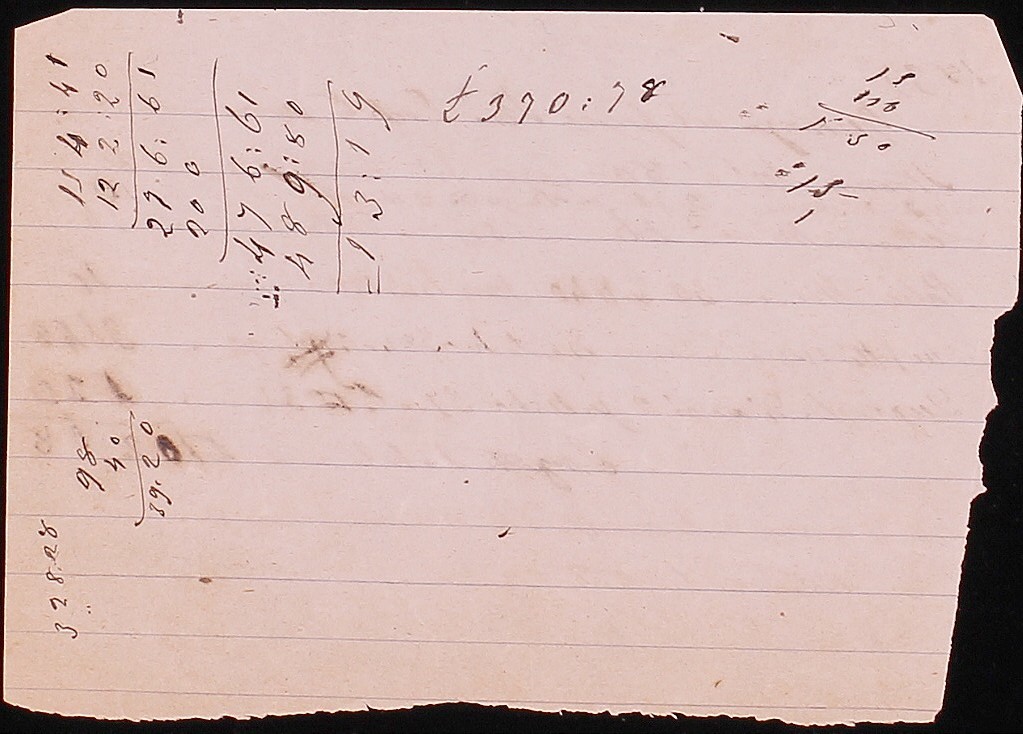 154:41
122:20
276:61
200
476:61
489:80
=13:19
£370:78
15
1:50
98
40
39.20
328.28